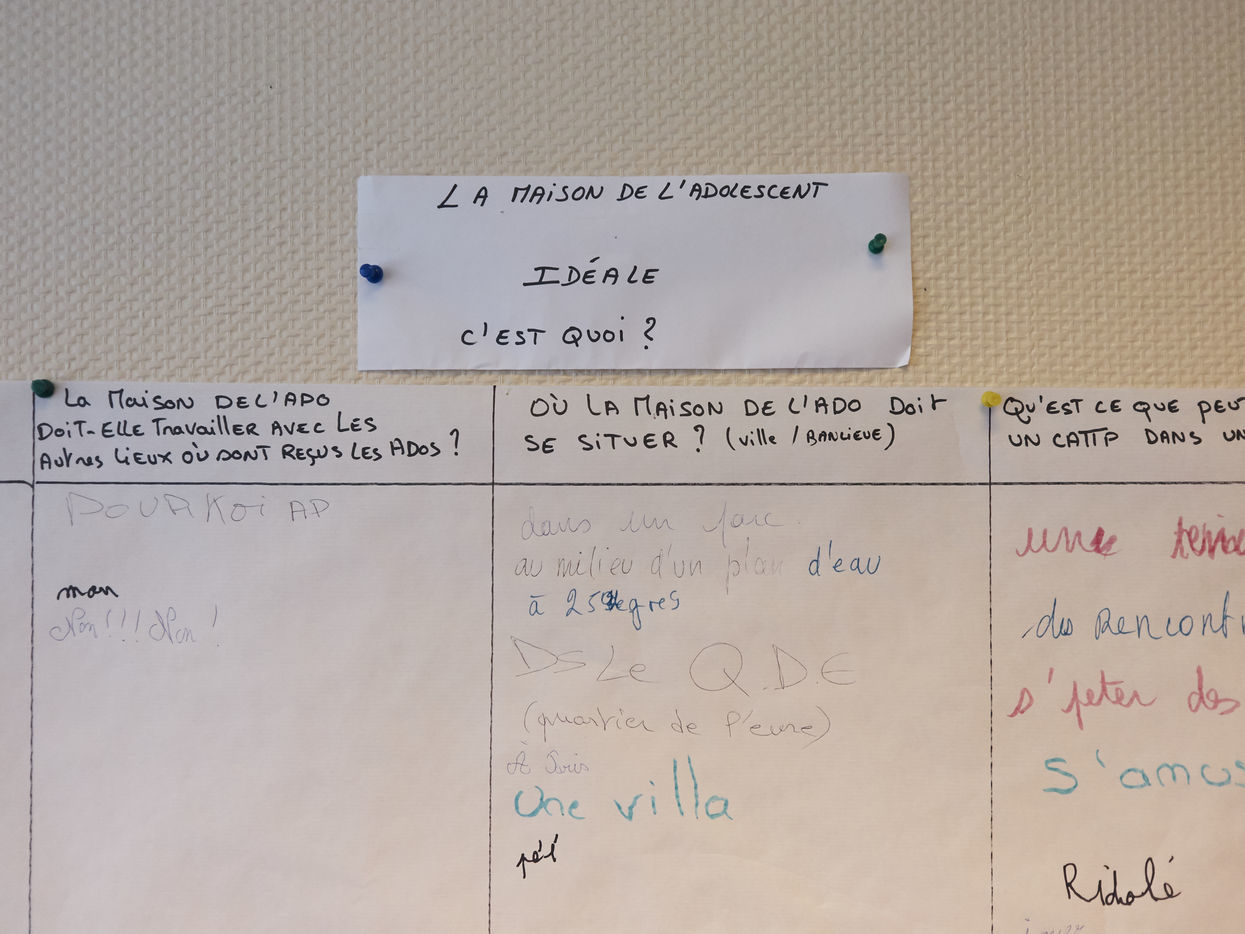 LA MAISON DE L'ADOLESCENT
IDÉALE
C'EST QUOI ?
La Maison DE L'ADO
DOIT-ELLE Travailler AVEC LES
Autres LIEUX OÙ SONT REÇUS LES ADOS ?
POURKOI AP
non
Non!!! Non !
OÙ LA MAISON DE L'ADO Doit
SE SITUER ? (ville / BANLIEUE)
dans un parc.
au milieu d'un plan d'eau
à 25 degrés
DS Le Q.D.E
(quartier de l'eure)
À Paris
Une villa
QU'EST CE QUE PEUT
UN CATTP DANS UN
une
des Rencont
s'jeter des
s'amus